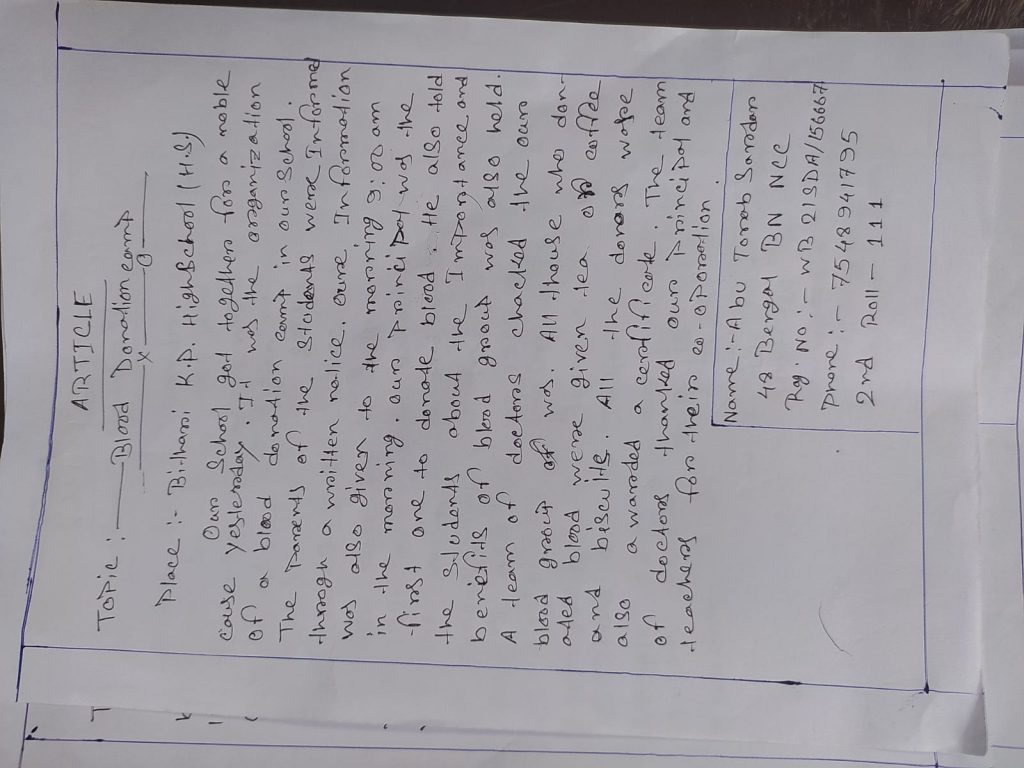 ARTICLE
TOPIC :- Blood Donation camp
Place :- Bithari K.P. High School (H.S)
Our School got together for a noble
cause yesterday. It was the organization
of a blood donation camp in our School.
The Parents of the Students were Informed
through a written notice. our Information
was also given to the morning 9:00 am
in the morning. our principal was the
first one to donate blood. He also told
the students about the Importance and
benefits of blood group was also held.
A team of doctors chacked the our
blood group of was. All those who don-
ated blood were given tea or coffee
and biscuits. All the donars was
also a warded a certificate. The team
of doctors thanked our principal and
teachers for their co-operation.
Name :- Abu Torab Sardar
48 Bengal BN NCC
Reg. No :- WB21SDA/156667
Phone :- 7548941795
2nd Roll - 111